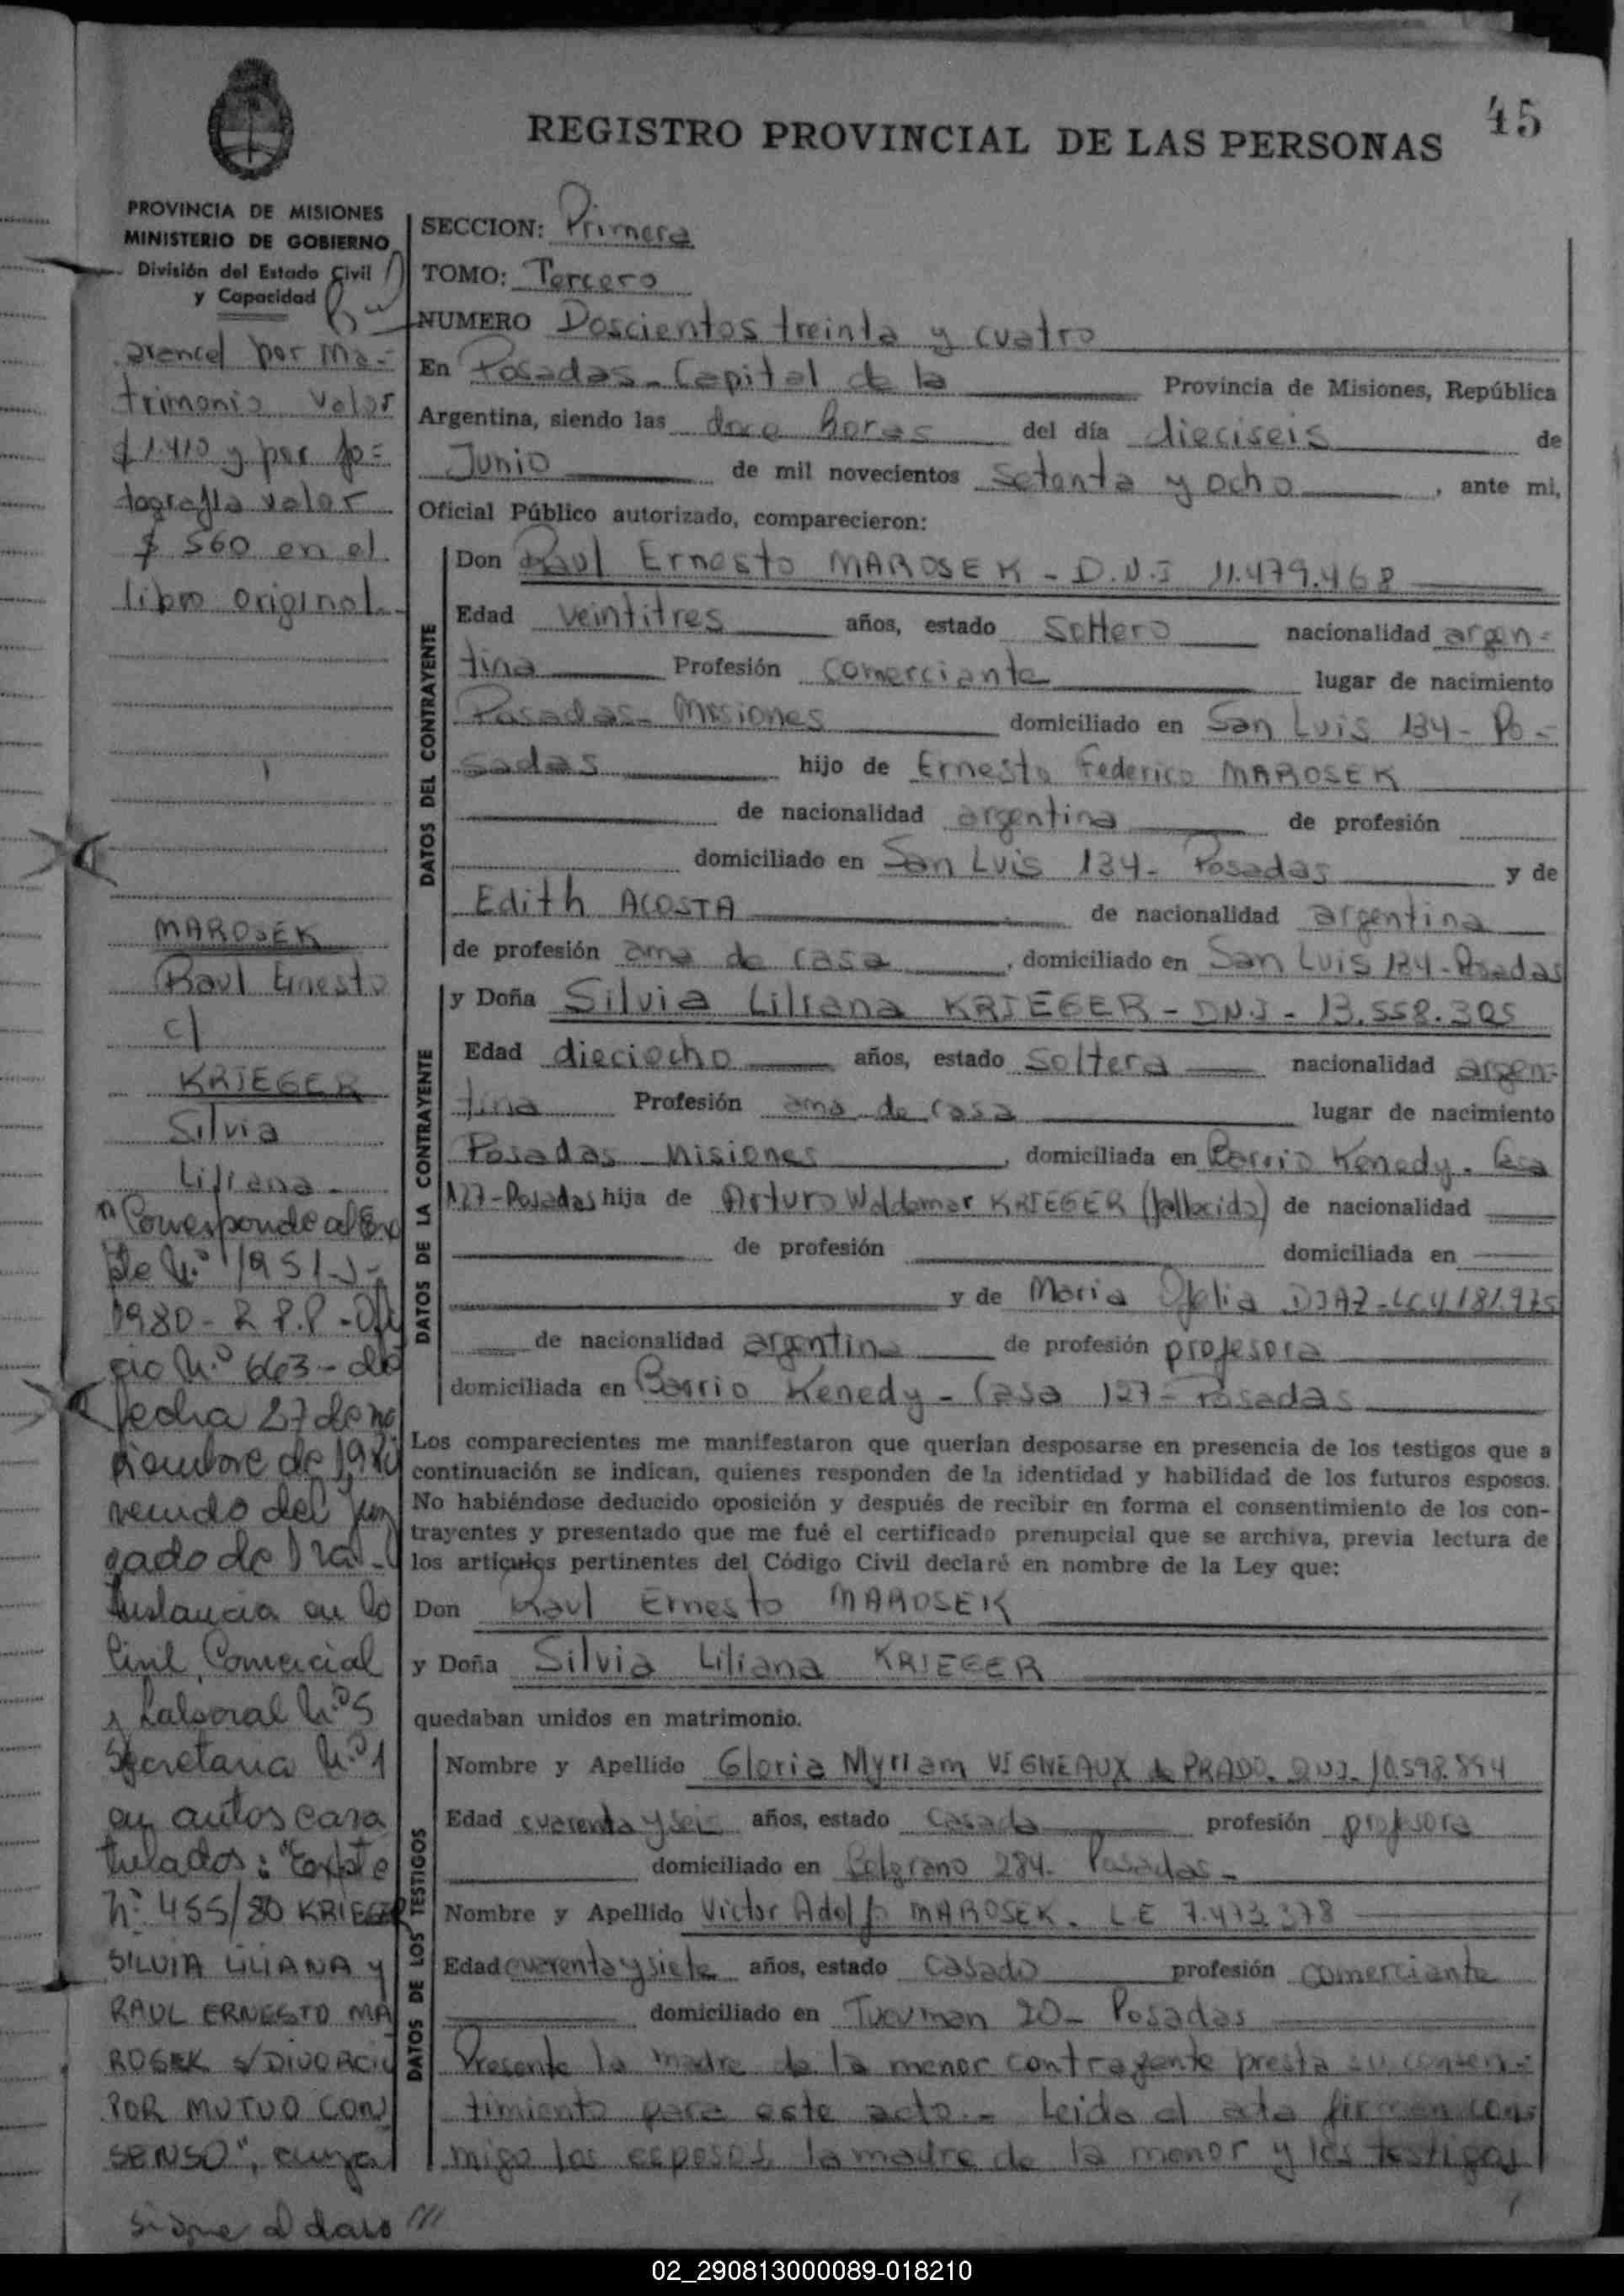 45
REGISTRO PROVINCIAL DE LAS PERSONAS
PROVINCIA DE MISIONES
MINISTERIO DE GOBIERNO
División del Estado Civil
y Capacidad
arancel por ma-
trimonio valor
$ 1.410 y por fo=
tografía valor
$ 560 en el
libro original.
MAROSEK
Raul Ernesto
c/
KRIEGER
Silvia
Liliana.-
Corresponde al Ex
pte N.º 1951-J-
1980- R.P.P.-Ofi
cio N.º 663- de
fecha 27 de no
viembre de
venido del Juz
gado de 1ra.
Instancia en lo
Civil, Comercial
y Laboral N.º 5
Secretaria N.º 1
en autos cara
tulados: "Expte
Nº 455/80 KRIEGER
SILVIA LILIANA y
RAUL ERNESTO MA
ROSEK s/DIVORCIO
POR MUTUO CON
SENSO", cuya
sigue al dorso ///
SECCION: Primera
TOMO: Tercero
NUMERO Doscientos treinta y cuatro
En Posadas - Capital de la Provincia de Misiones, República
Argentina, siendo las doce horas del día dieciseis de
Junio de mil novecientos setenta y ocho, ante mi,
Oficial Público autorizado, comparecieron:
DATOS DEL CONTRAYENTE
Don Raul Ernesto MAROSEK - D.N.I 11.479.468
Edad veintitres años, estado soltero nacionalidad argen=
tina Profesión comerciante lugar de nacimiento
Posadas - Misiones domiciliado en San Luis 134 - Po -
sadas hijo de Ernesto Federico MAROSEK
de nacionalidad argentina de profesión
domiciliado en San Luis 134 - Posadas y de
Edith ACOSTA de nacionalidad argentina
de profesión ama de casa, domiciliado en San Luis 134 - Posadas
DATOS DE LA CONTRAYENTE
y Doña Silvia Liliana KRIEGER - DN.I - 13.558.305
Edad dieciocho años, estado soltera nacionalidad argen=
tina Profesión ama de casa lugar de nacimiento
Posadas Misiones, domiciliada en Barrio Kenedy. Casa
127 - Posadas hija de Arturo Waldemar KRIEGER (fallecido) de nacionalidad
de profesión domiciliada en
y de Maria Ofelia DIAZ - LC 4.181.975
de nacionalidad argentina de profesión profesora
domiciliada en Barrio Kenedy - Casa 127 - Posadas
Los comparecientes me manifestaron que querían desposarse en presencia de los testigos que a
continuación se indican, quienes responden de la identidad y habilidad de los futuros esposos.
No habiéndose deducido oposición y después de recibir en forma el consentimiento de los con-
trayentes y presentado que me fué el certificado prenupcial que se archiva, previa lectura de
los artículos pertinentes del Código Civil declaré en nombre de la Ley que:
Don Raul Ernesto MAROSEK
y Doña Silvia Liliana KRIEGER
quedaban unidos en matrimonio.
DATOS DE LOS TESTIGOS
Nombre y Apellido Gloria Myriam VIGNEAUX de PRADO. DNI. 10.598.894
Edad cuarenta y seis años, estado casada profesión profesora
domiciliado en Belgrano 284 - Posadas -
Nombre y Apellido Victor Adolfo MAROSEK. L.E 7.473.378
Edad cuarenta y siete años, estado casado profesión comerciante
domiciliado en Tucuman 20 - Posadas
Presente la madre de la menor contrayente presta su consen=
timiento para este acto.- Leida el acta firman con=
migo los esposos, la madre de la menor y los testigos
02_290813000089-018210